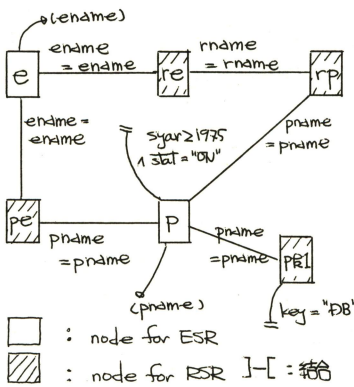 (ename)
ename
= ename
rname
= rname
e
re
rp
ename =
ename
syar≥1975
∧ stat = "ON"
pname
= pname
pe
p
pname
= pname
pname
= pname
pk1
(pname)
key = "DB"
: node for ESR
: node for RSR
: 結合